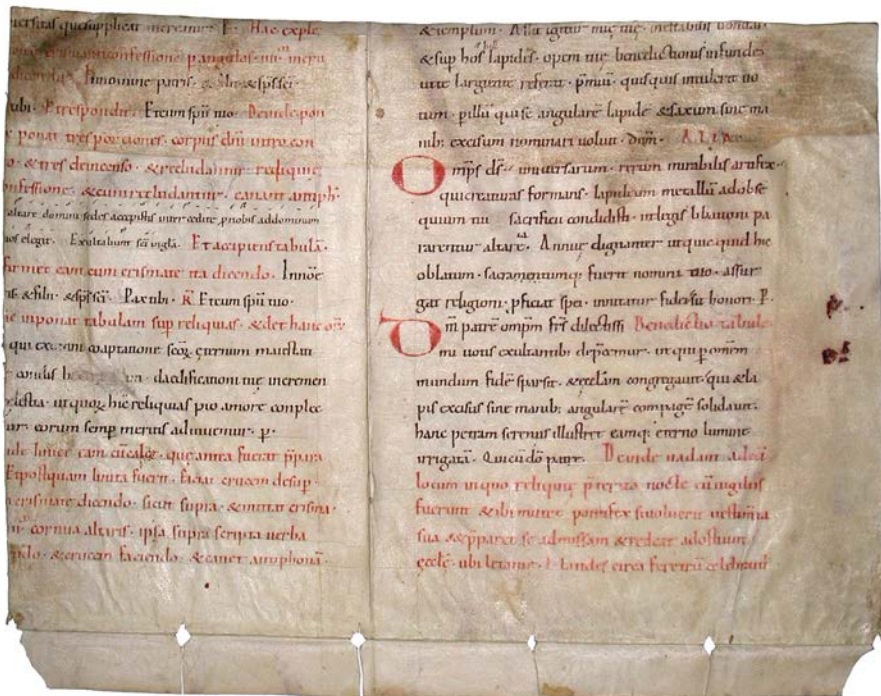 uersitas que supplicat meremur. P. Hac exple
confessione p angulos
Innomine patris. & filii & sps sci.
tibi. Et respondit. Et cum spu tuo. Deinde pon
ponat tres portiones. corpus dni intro con
& tres de incenso. & recludantur reliquie
confessione & cum recludantur. canant antiph.
altare domini sedes accepistis intercedite p nobis ad dominum
nos elegit. Exultabunt sci in gla. Et accipiens tabula.
firmet eam cum crismate ita dicendo. Innoe
& filii. & sps sci. Pax tibi. R Et cum spu tuo.
inponat tabulam sup reliquias. & det hanc or
qui ex omni coaptatione scoz eternum maiestati
condis da edificationi tue incremen
ut quoz hic reliquias pio amore complec
eorum semp meritis adiuuemur. p.
liniet eam cu calce. que antea fuerat ppara
Et postquam linita fuerit. faciat crucem desup.
crismate dicendo. sicut supra. & mittat crisma.
cornua altaris. ipsa supra scripta uerba
& crucem faciendo. & canet antiphona.
& templum. Assit igitur
& sup hos lapides. opem tue benedictionis infundes
ut te largiente referat. pmiu. quisquis intulerit uo
tum. p illu qui se angulare lapide & saxum sine ma
nib; excisum nominari uoluit. dnm. ALIA
Omps ds uniuersarum. rerum mirabilis artifex.
qui creaturas formans. lapideum metalla ad obse
quium tui sacrificii condidisti. ut legis libatori pa
rarentur altare. Annue dignanter ut quicquid hic
oblatum. sacratumq; fuerit nomini tuo. assur
gat religioni. pficiat spei. innitatur fidei sit honori. P.
Dm patre ompm frs dilectissi Benedictio tabule
mi uotis exultantib; depcemur. ut qui p omem
mundum fide sparsit. & ecclam congregauit. qui & la
pis excisus sine manib; angulare compage solidauit.
hanc petram serenus illustret eamq; eterno lumine
irrigata. Qui cu do patre. Deinde uadant ad eu
locum in quo reliquie pterito nocte cu uigiliis
fuerunt & ibi mutet pontifex si uoluerit uestimta
sua & pparet se ad missam & redeat ad ostium
eccle. ubi letanie. & laudes circa feretru celebrant